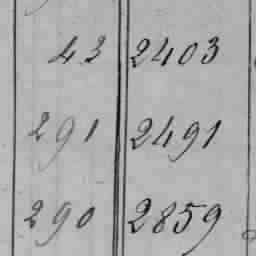 43 2403
291 2491
290 2859